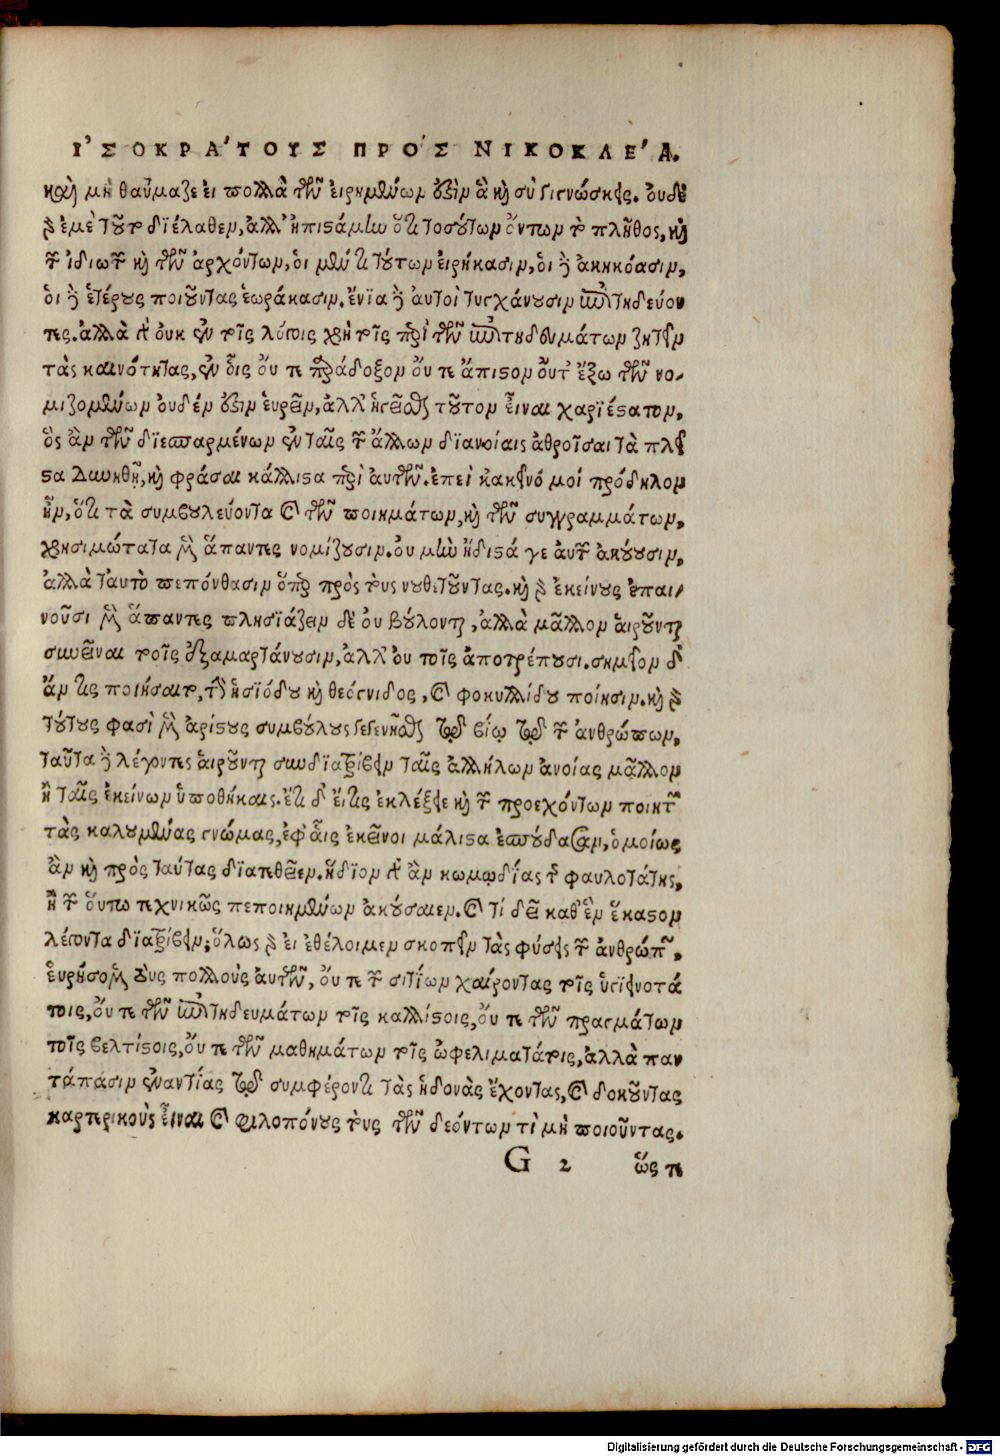 ἸΣΟΚΡΆΤΟΥΣ ΠΡῸΣ ΝΙΚΟΚΛΈΑ.
καὶ μὴ θαύμαζε εἰ πολλὰ τῶν εἰρημένων ἐστὶν ἃ καὶ σὺ γιγνώσκεις. οὐδὲ
γὰρ ἐμὲ τοῦτο διέλαθεν, ἀλλ' ἠπιστάμην ὅτι τοσούτων ὄντων τὸ πλῆθος, καὶ
τῶν ἰδιωτῶν καὶ τῶν ἀρχόντων, οἱ μέν τι τούτων εἰρήκασιν, οἱ δὲ ἀκηκόασιν,
οἱ δὲ ἑτέρους ποιοῦντας ἑωράκασιν. ἔνια δὲ αὐτοὶ τυγχάνουσιν ἐπιτηδεύον
τες. ἀλλὰ γὰρ οὐκ ἐν τοῖς λόγοις χρὴ τοῖς περὶ τῶν ἐπιτηδευμάτων ζητεῖν
τὰς καινότητας, ἐν οἷς οὔ τε παράδοξον οὔ τε ἄπιστον οὔτ' ἔξω τῶν νο-
μιζομένων οὐδέν ἐστιν εὑρεῖν, ἀλλ' ἡγεῖσθαι τοῦτον εἶναι χαριέστατον,
ὃς ἂν τῶν διεσπαρμένων ἐν ταῖς τῶν ἄλλων διανοίαις ἀθροῖσαι τὰ πλεῖ
στα δυνηθῇ, καὶ φράσαι κάλλιστα περὶ αὐτῶν. ἐπεὶ κἀκεῖνό μοι πρόδηλον
ἦν, ὅτι τὰ συμβουλεύοντα καὶ τῶν ποιημάτων, καὶ τῶν συγγραμμάτων,
χρησιμώτατα μὲν ἅπαντες νομίζουσιν. οὐ μὴν ἥδιστά γε αὐτῶν ἀκούουσιν,
ἀλλὰ ταυτὸ πεπόνθασιν ὅπερ πρὸς τοὺς νουθετοῦντας. καὶ γὰρ ἐκείνους ἐπαι-
νοῦσι μὲν ἅπαντες πλησιάζειν δὲ οὐ βούλονται, ἀλλὰ μᾶλλον αἱροῦνται
συνεῖναι τοῖς ἐξαμαρτάνουσιν, ἀλλ' οὐ τοῖς ἀποτρέπουσι. σημεῖον δ'
ἄν τις ποιήσαιτο, τὴν ἡσιόδου καὶ θεόγνιδος, καὶ φοκυλλίδου ποίησιν. καὶ γὰρ
τούτους φασὶ μὲν ἀρίστους συμβούλους γεγενῆσθαι τῷ βίῳ τῷ τῶν ἀνθρώπων,
ταῦτα δὲ λέγοντες αἱροῦνται συνδιατρίβειν ταῖς ἀλλήλων ἀνοίαις μᾶλλον
ἢ ταῖς ἐκείνων ὑποθήκαις. ἔτι δ' εἴ τις ἐκλέξειε καὶ τῶν προεχόντων ποιητῶν
τὰς καλουμένας γνώμας, ἐφ' αἷς ἐκεῖνοι μάλιστα ἐσπούδασαν, ὁμοίως
ἂν καὶ πρὸς ταύτας διατεθεῖεν. ἥδιον γὰρ ἂν κωμῳδίας τῆς φαυλοτάτης,
ἢ τῶν οὕτω τεχνικῶς πεποιημένων ἀκούσαιεν. καὶ τί δεῖ καθ' ἓν ἕκαστον
λέγοντα διατρίβειν; ὅλως γὰρ εἰ ἐθέλοιμεν σκοπεῖν τὰς φύσεις τῶν ἀνθρώπων,
εὑρήσομεν τοὺς πολλοὺς αὐτῶν, οὔ τε τῶν σιτίων χαίροντας τοῖς ὑγιεινοτά
τοις, οὔ τε τῶν ἐπιτηδευμάτων τοῖς καλλίστοις, οὔ τε τῶν πραγμάτων
τοῖς βελτίστοις, οὔ τε τῶν μαθημάτων τοῖς ὠφελιματάτοις, ἀλλὰ παν
τάπασιν ἐναντίας τῷ συμφέροντι τὰς ἡδονὰς ἔχοντας, καὶ δοκοῦντας
καρτερικοὺς εἶναι καὶ φιλοπόνους τοὺς τῶν δεόντων τὶ μὴ ποιοῦντας.
G 2 ὥς τε
Digitalisierung gefördert durch die Deutsche Forschungsgemeinschaft - DFG